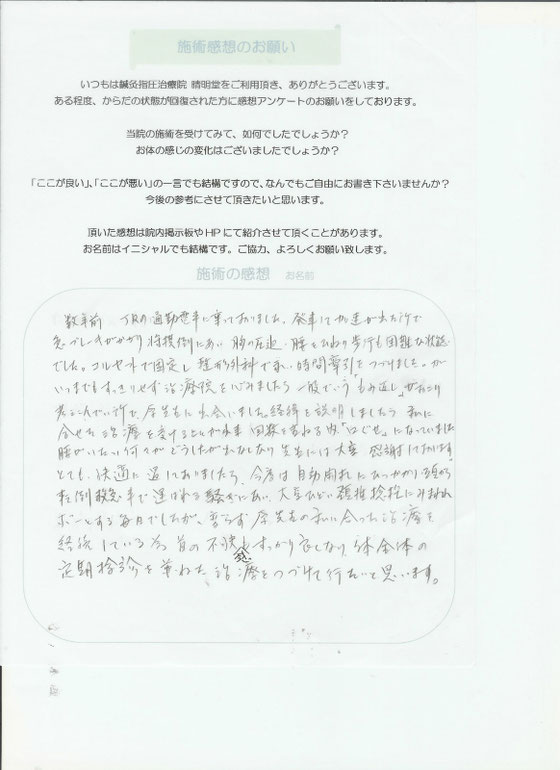 施術感想のお願い
いつもは鍼灸指圧治療院 晴明堂をご利用頂き、ありがとうございます。
ある程度、からだの状態が回復された方に感想アンケートのお願いをしております。
当院の施術を受けてみて、如何でしたでしょうか？
お体の感じの変化はございましたでしょうか？
「ここが良い」、「ここが悪い」の一言でも結構ですので、なんでもご自由にお書き下さいませんか？
今後の参考にさせて頂きたいと思います。
頂いた感想は院内掲示板やHPにて紹介させて頂くことがあります。
お名前はイニシャルでも結構です。ご協力、よろしくお願い致します。
施術の感想 お名前
数年前 JRの通勤電車に乗っておりました。発車して加速が出た所で
急ブレーキがかかり将棋倒にあい 胸の圧迫、腰をひねり歩行も困難な状態
でした。コルセットで固定し 整形外科で 時間牽引をつづけました。が
いつまでもすっきりせず治療院を心みましたら 一般でいう「もみ返し」がおこり
考えこんでいた所で、原先生に出会いました。経緯を説明しましたら 私に
合せた治療を受けることが出来 回数を重ねる内、「口ぐせ」になっていました
腰がいたい何々がどうしたが出なくなり 先生には大変 感謝しております。
とても、快適に過しておりましたら、今度は自動開扉にひっかかり頭から
転倒 救急車で運ばれる騒ぎにあい、大変ひどい頚椎捻挫にみまわれ
ボーとする毎日でしたが、変らず原先生の私に合った治療を
継続している為 首の不快感もすっかり良くなり 体全体の
定期検診を兼ねた治療をつづけて行きたいと思います。